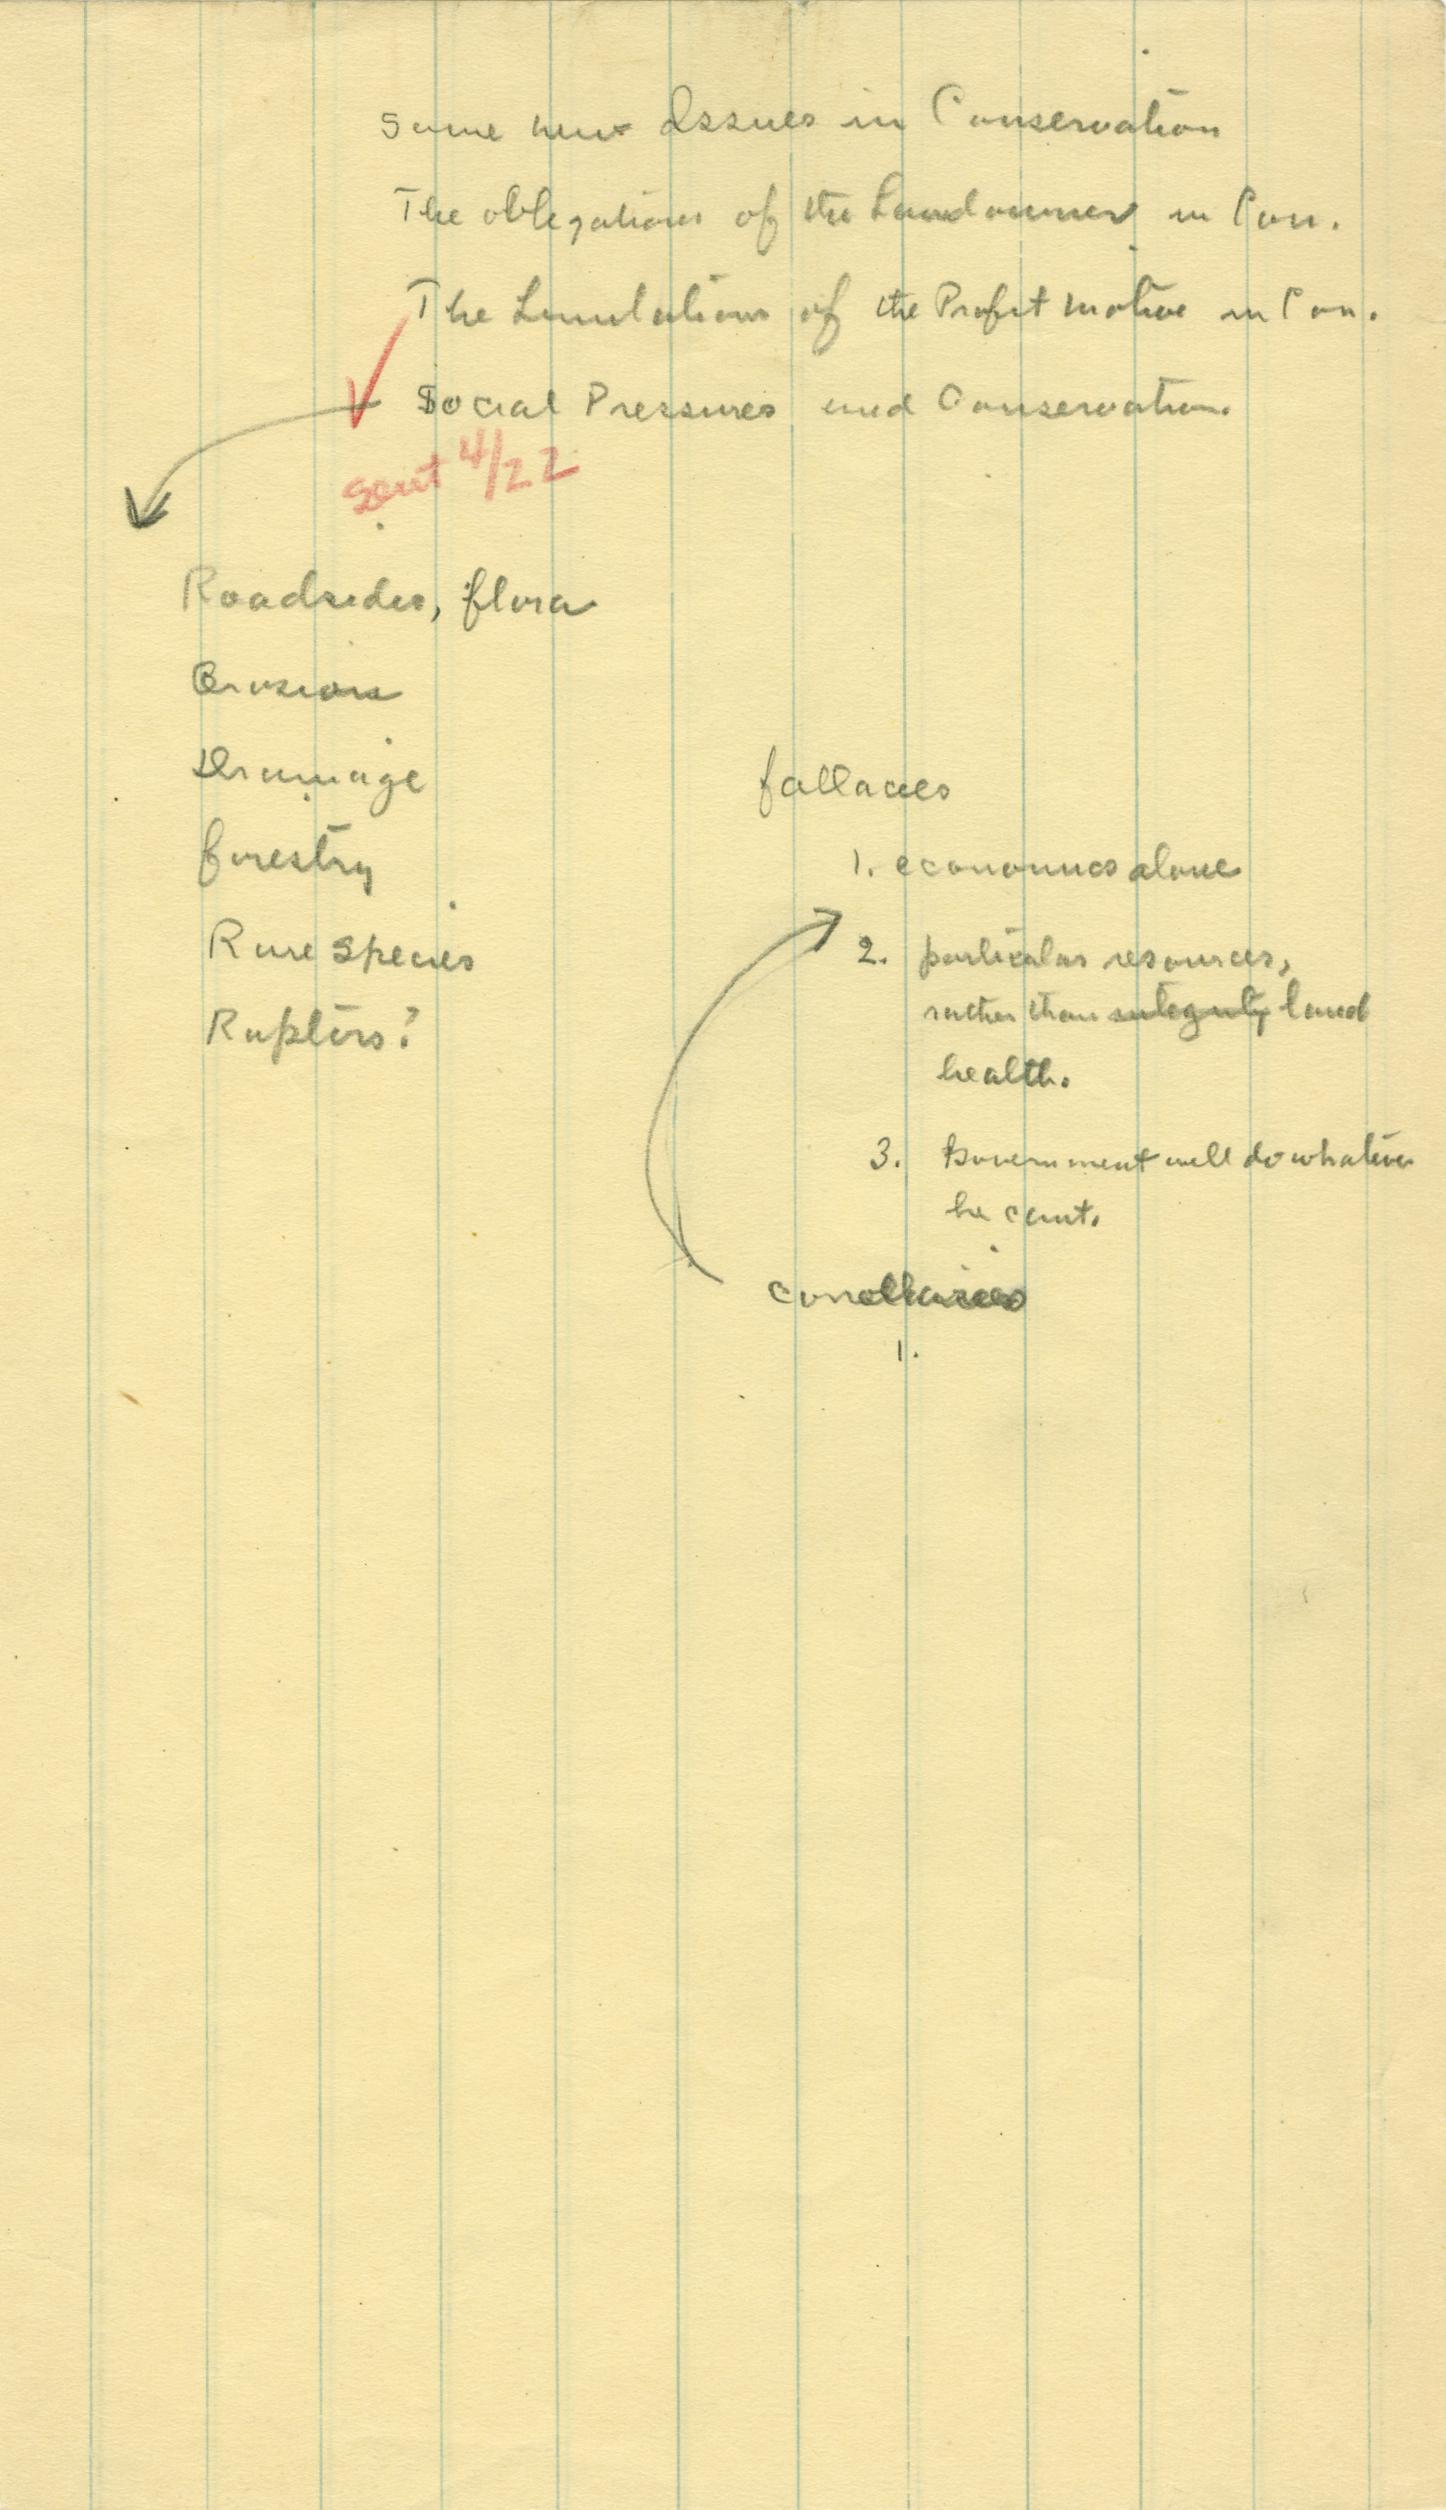 Some new Issues in Conservation
The obligations of the Landowner in Con.
The Limitations of the Profit Motive in Con.
Social Pressures and Conservation.
Sent 4/22
Roadsides, flora
Erosion
Drainage
forestry
Rare Species
Raptors?
fallacies
1. economics alone
2. particular resources,
rather than integrity land
health.
3. Government will do whatever
he cant.
corollaries
1.